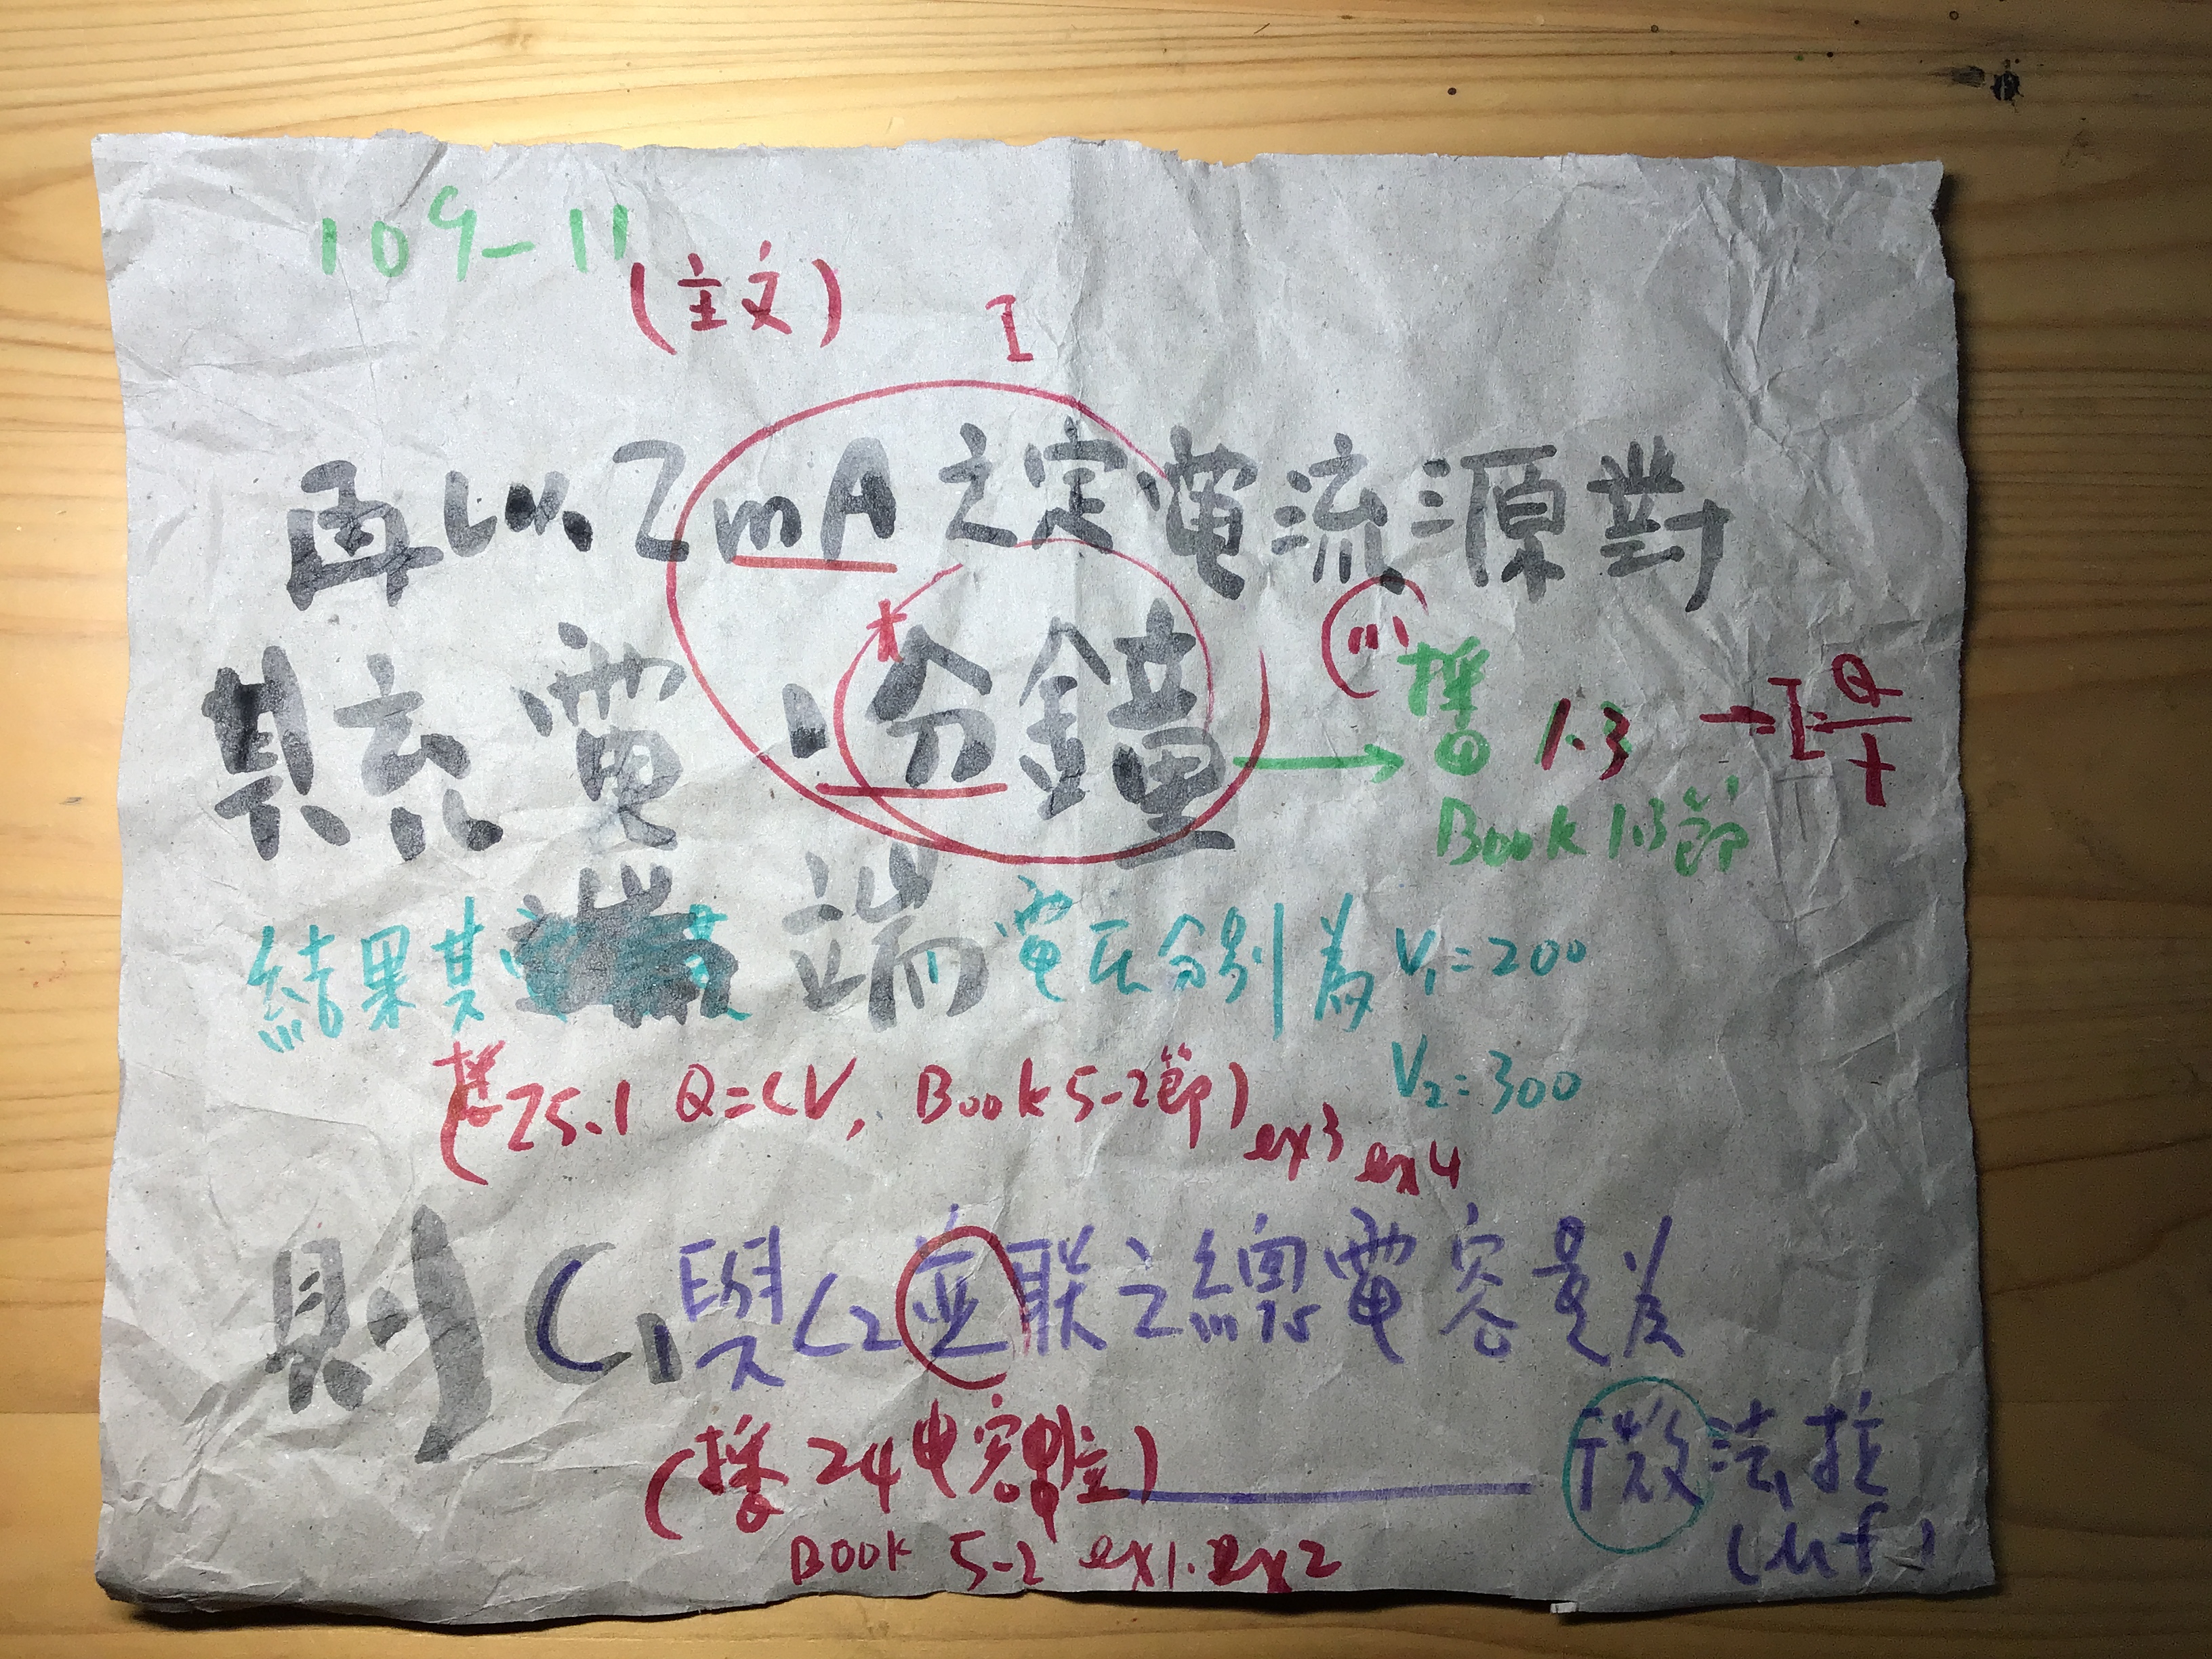 109-11
(主文)
I
再以 2mA之定電流源對
其充電 1分鐘
→ 1.3 → I=Q/t
Book 1.3節
結果其 端電压分别為 V₁=200
V₂=300
( 25.1 Q=CV, Book 5-2節) ex3 ex4
則 C₁與C₂並联之總電容量为
( 24电容 ) 微法拉
(μf)
Book 5-2 ex1. ex2